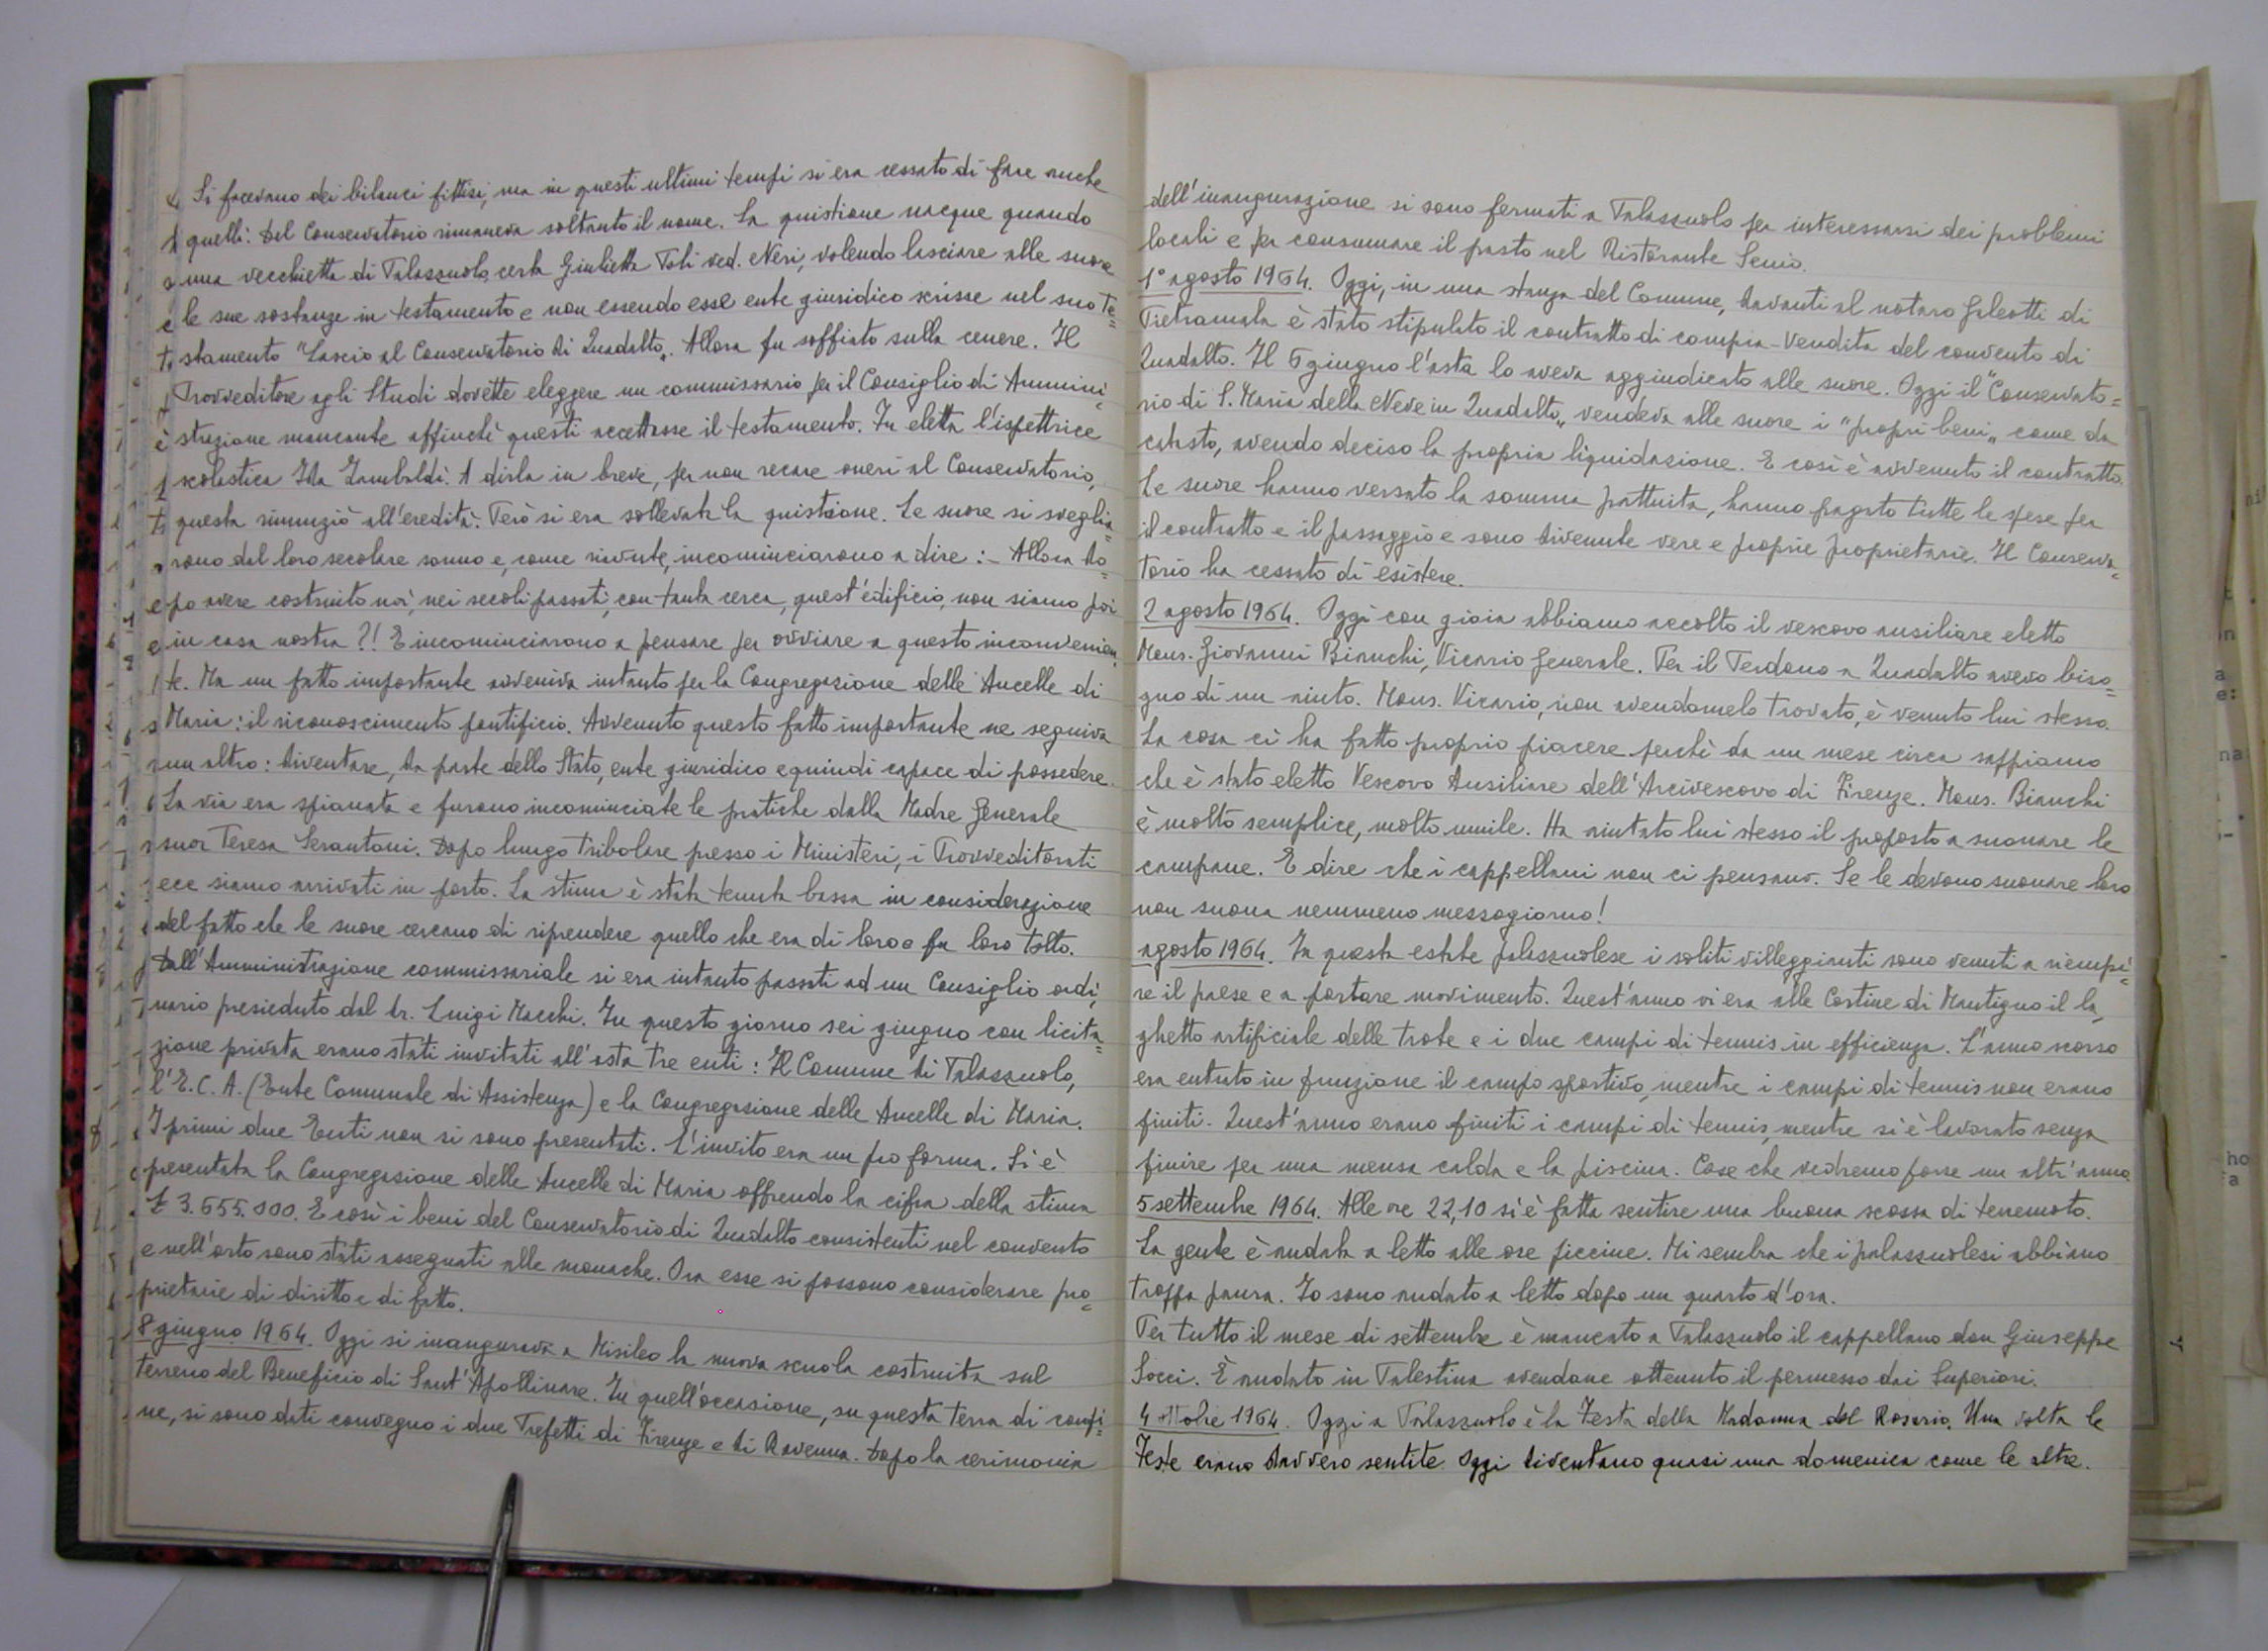 Si facevano dei bilanci fittizi, ma in questi ultimi tempi si era cessato di fare anche
quelli. Del Conservatorio rimaneva soltanto il nome. La quistione nacque quando
una vecchietta di Palazzuolo, certa Giulietta Poli ved. Neri, volendo lasciare alle suore
le sue sostanze in testamento e non essendo esse ente giuridico scrisse nel suo te=
stamento "Lascio al Conservatorio di Quadalto„. Allora fu soffiato sulla cenere. Il
Provveditore agli Studi dovette eleggere un commissario per il Consiglio di Ammini=
strazione mancante affinché questi accettasse il testamento. Fu eletta l'ispettrice
scolastica Ida Zambaldi. A dirla in breve, per non recare oneri al Conservatorio,
questa rinunziò all'eredità. Però si era sollevata la quistione. Le suore si sveglia=
rono dal loro secolare sonno e, come rinvenute, incominciarono a dire: - Allora do=
po avere costruito noi, nei secoli passati, con tanta cerca, quest'edificio, non siamo poi
in casa nostra ?! E incominciarono a pensare per ovviare a questo inconvenien=
te. Ma un fatto importante avveniva intanto per la Congregazione delle Ancelle di
Maria: il riconoscimento pontificio. Avvenuto questo fatto importante ne seguiva
un altro: diventare, da parte dello Stato, ente giuridico e quindi capace di possedere.
La via era spianata e furono incominciate le pratiche dalla Madre Generale
suor Teresa Serantoni. Dopo lungo tribolare presso i Ministeri, i Provveditorati
ecc siamo arrivati in porto. La stima è stata tenuta bassa in considerazione
del fatto che le suore cercano di riprendere quello che era di loro e fu loro tolto.
Dall'Amministrazione commissariale si era intanto passati ad un Consiglio ordi=
nario presieduto dal dr. Luigi Macchi. In questo giorno sei giugno con licita=
zione privata erano stati invitati all'asta tre enti: Il Comune di Palazzuolo,
l'E.C.A. (Ente Comunale di Assistenza) e la Congregazione delle Ancelle di Maria.
I primi due Enti non si sono presentati. L'invito era un pro forma. Si è
presentata la Congregazione delle Ancelle di Maria offrendo la cifra della stima
£ 3.655.000. E così i beni del Conservatorio di Quadalto consistenti nel convento
e nell'orto sono stati assegnati alle monache. Ora esse si possono considerare pro=
prietarie di diritto e di fatto.
8 giugno 1964. Oggi si inaugurava a Misileo la nuova scuola costruita sul
terreno del Beneficio di Sant'Apollinare. In quell'occasione, su questa terra di confi=
ne, si sono dati convegno i due Prefetti di Firenze e di Ravenna. Dopo la cerimonia
dell'inaugurazione si sono fermati a Palazzuolo per interessarsi dei problemi
locali e per consumare il pasto nel Ristorante Senio.
1° agosto 1964. Oggi, in una stanza del Comune, davanti al notaro Galeotti di
Pietramala è stato stipulato il contratto di compra-vendita del convento di
Quadalto. Il 6 giugno l'asta lo aveva aggiudicato alle suore. Oggi il "Conservato=
rio di S. Maria della Neve in Quadalto„ vendeva alle suore i "propri beni„ come da
catasto, avendo deciso la propria liquidazione. E così è avvenuto il contratto.
Le suore hanno versato la somma pattuita, hanno pagato tutte le spese per
il contratto e il passaggio e sono divenute vere e proprie proprietarie. Il Conserva=
torio ha cessato di esistere.
2 agosto 1964. Oggi con gioia abbiamo accolto il vescovo ausiliare eletto
Mons. Giovanni Bianchi, Vicario Generale. Per il Perdono a Quadalto avevo biso=
gno di un aiuto. Mons. Vicario, non avendomelo trovato, è venuto lui stesso.
La cosa ci ha fatto proprio piacere perché da un mese circa sappiamo
che è stato eletto Vescovo Ausiliare dell'Arcivescovo di Firenze. Mons. Bianchi
è molto semplice, molto umile. Ha aiutato lui stesso il proposto a suonare le
campane. E dire che i cappellani non ci pensano. Se le devono suonare loro
non suona nemmeno mezzogiorno!
agosto 1964. In questa estate palazzuolese i soliti villeggianti sono venuti a riempi=
re il paese e a portare movimento. Quest'anno vi era alle Cortine di Mantigno il la=
ghetto artificiale delle trote e i due campi di tennis in efficienza. L'anno scorso
era entrato in funzione il campo sportivo, mentre i campi di tennis non erano
finiti. Quest'anno erano finiti i campi di tennis, mentre si è lavorato senza
finire per una mensa calda e la piscina. Cose che vedremo forse un altr'anno.
5 settembre 1964. Alle ore 22,10 si è fatta sentire una buona scossa di terremoto.
La gente è andata a letto alle ore piccine. Mi sembra che i palazzuolesi abbiano
troppa paura. Io sono andato a letto dopo un quarto d'ora.
Per tutto il mese di settembre è mancato a Palazzuolo il cappellano don Giuseppe
Socci. È andato in Palestina avendone ottenuto il permesso dai Superiori.
4 ottobre 1964. Oggi a Palazzuolo è la Festa della Madonna del Rosario. Una volta le
Feste erano davvero sentite. Oggi diventano quasi una domenica come le altre.